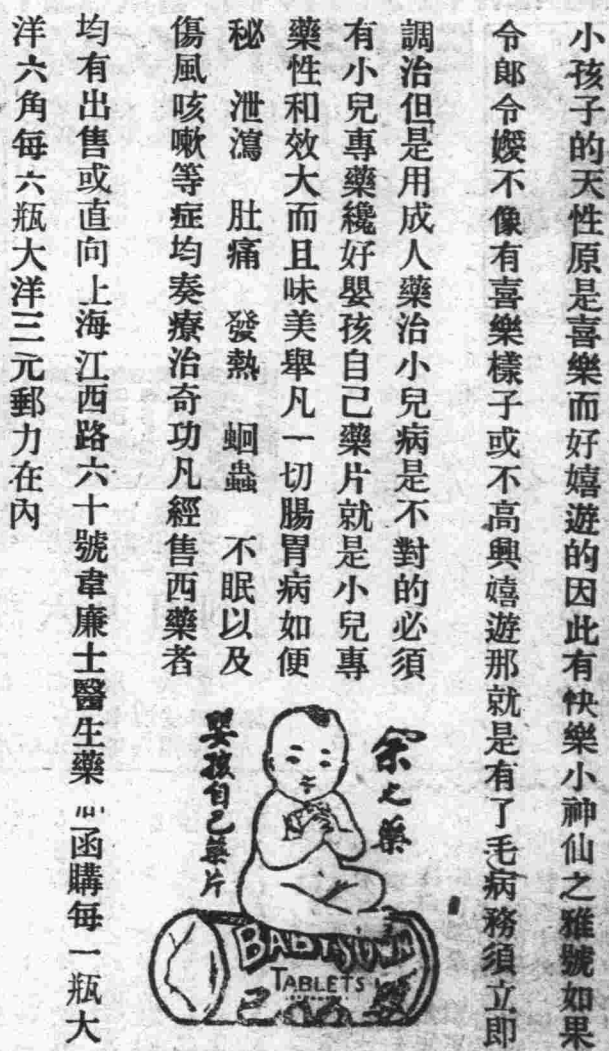 小孩子的天性原是喜樂而好嬉遊的因此有快樂小神仙之雅號如果
令郎令嬡不像有喜樂樣子或不高興嬉遊那就是有了毛病務須立即
調治但是用成人藥治小兒病是不對的必須
有小兒專藥纔好嬰孩自己藥片就是小兒專
藥性和效大而且味美舉凡一切腸胃病如便
秘 泄瀉 肚痛 發熱 蛔蟲 不眠以及
傷風咳嗽等症均奏療治奇功凡經售西藥者
均有出售或直向上海江西路六十號韋廉士醫生藥 函購每一瓶大
洋六角每六瓶大洋三元郵力在內
余之藥
嬰孩自己藥片
BABY'S OWN
TABLETS